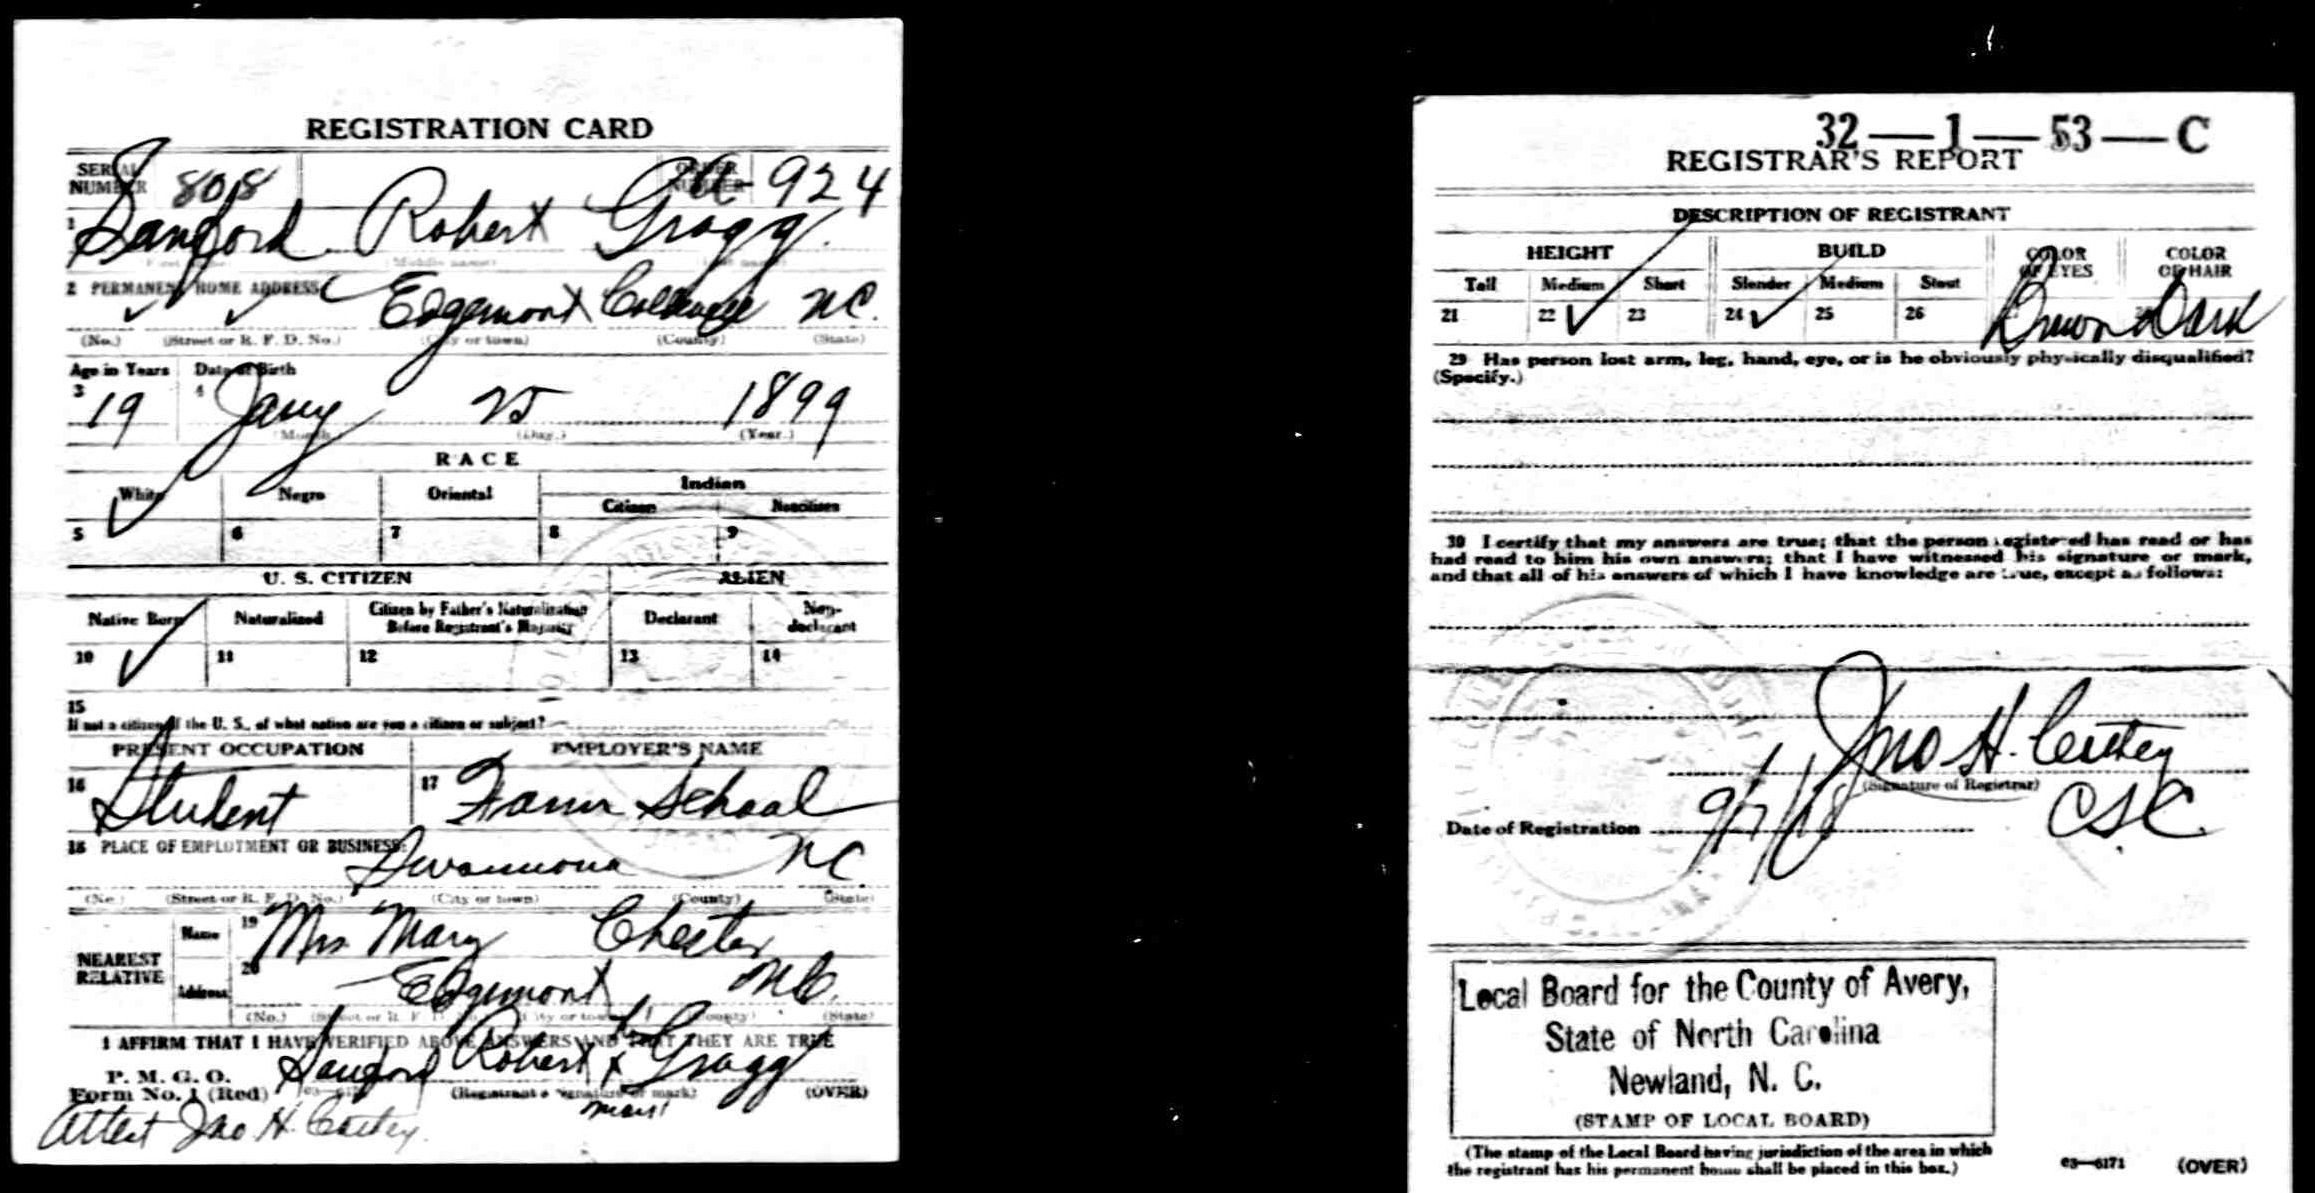 REGISTRATION CARD
SERIAL NUMBER 808 ORDER NUMBER A-924
1 Sanford Robert Gragg.
(First name) (Middle name) (Last name)
2 PERMANENT HOME ADDRESS
Edgemont NC.
(No.) (Street or R. F. D. No.) (City or town) (County) (State)
Age in Years Date of Birth
3 19 4 Jany 25 1899
(Month.) (Day.) (Year.)
RACE
White Negro Oriental Indian
Citizen Noncitizen
5 ✓ 6 7 8 9
U. S. CITIZEN ALIEN
Native Born Naturalized Citizen by Father's Naturalization Before Registrant's Majority Declarant Non-declarant
10 ✓ 11 12 13 14
15
If not a citizen of the U. S., of what nation are you a citizen or subject?
PRESENT OCCUPATION EMPLOYER'S NAME
16 Student 17 Farm School
18 PLACE OF EMPLOYMENT OR BUSINESS:
Swannona NC
(No.) (Street or R. F. D. No.) (City or town) (County) (State)
NEAREST RELATIVE
Name 19 Mrs Mary Chester
Address 20 Edgemont N.C.
(No.) (Street or R. F. D. No.) (City or town) (County) (State)
I AFFIRM THAT I HAVE VERIFIED ABOVE ANSWERS AND THAT THEY ARE TRUE
P. M. G. O.
Form No. 1 (Red) Sanford Robert his x Gragg
(Registrant's signature or mark) (OVER)
mark
Attest Jno H.
32—1—53—C
REGISTRAR'S REPORT
DESCRIPTION OF REGISTRANT
HEIGHT BUILD COLOR OF EYES COLOR OF HAIR
Tall Medium Short Slender Medium Stout
21 22 ✓ 23 24 ✓ 25 26 Brown Dark
29 Has person lost arm, leg, hand, eye, or is he obviously physically disqualified?
(Specify.)
30 I certify that my answers are true; that the person registered has read or has
had read to him his own answers; that I have witnessed his signature or mark,
and that all of his answers of which I have knowledge are true, except as follows:
Jno H.
(Signature of Registrar)
Date of Registration CSC.
Local Board for the County of Avery,
State of North Carolina
Newland, N. C.
(STAMP OF LOCAL BOARD)
(The stamp of the Local Board having jurisdiction of the area in which
the registrant has his permanent home shall be placed in this box.)
03—6171 (OVER)